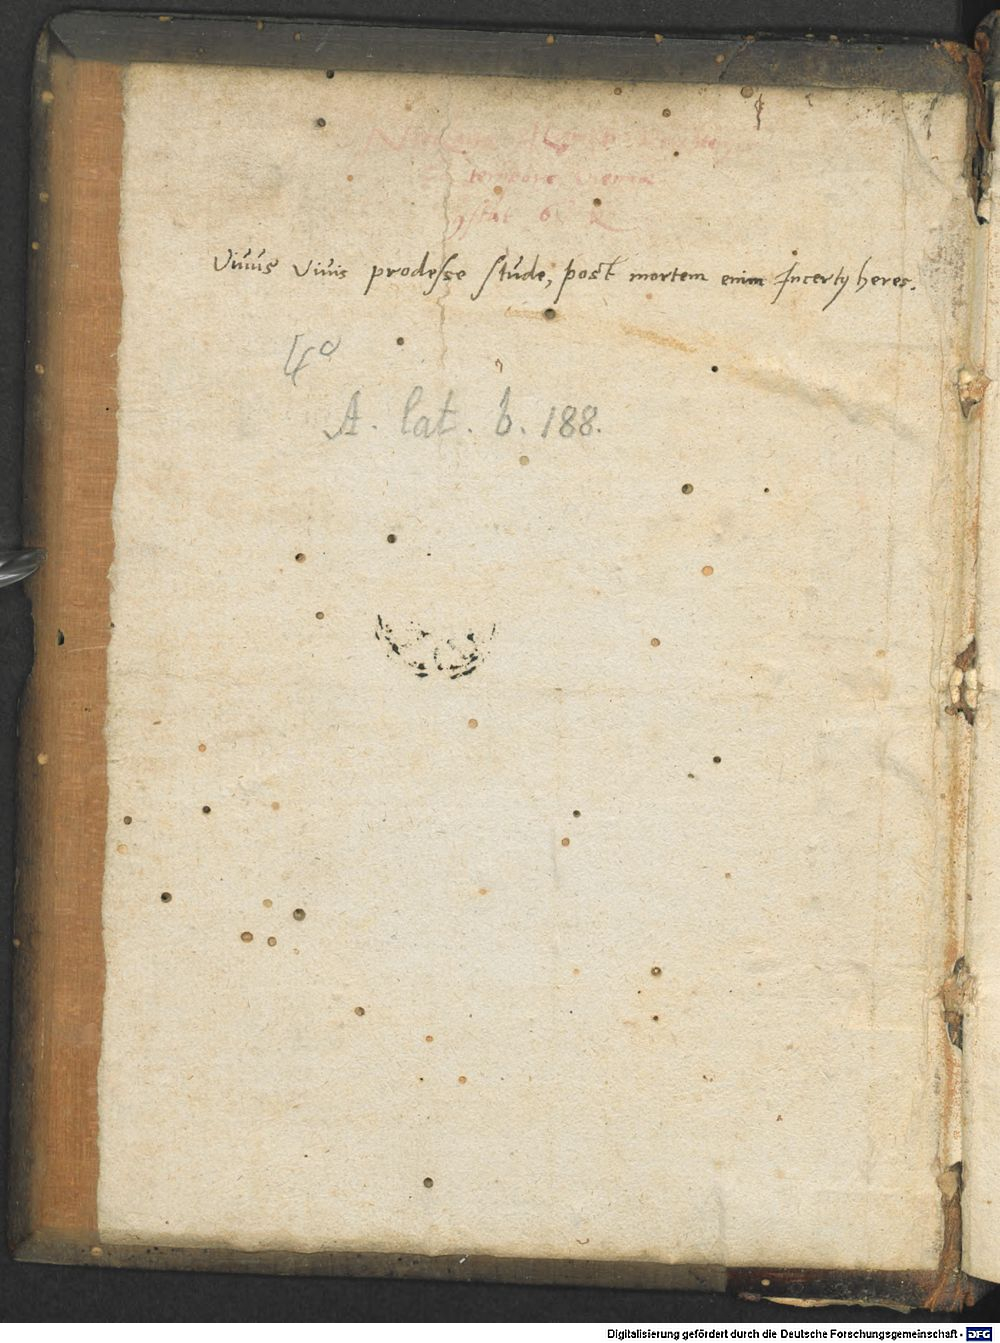 tempore
ꝯstat 6
Viuus Viuis prodesse stude, post mortem enim Incertꝰ heres.
4°
A. lat. b. 188.
Digitalisierung gefördert durch die Deutsche Forschungsgemeinschaft - DFG